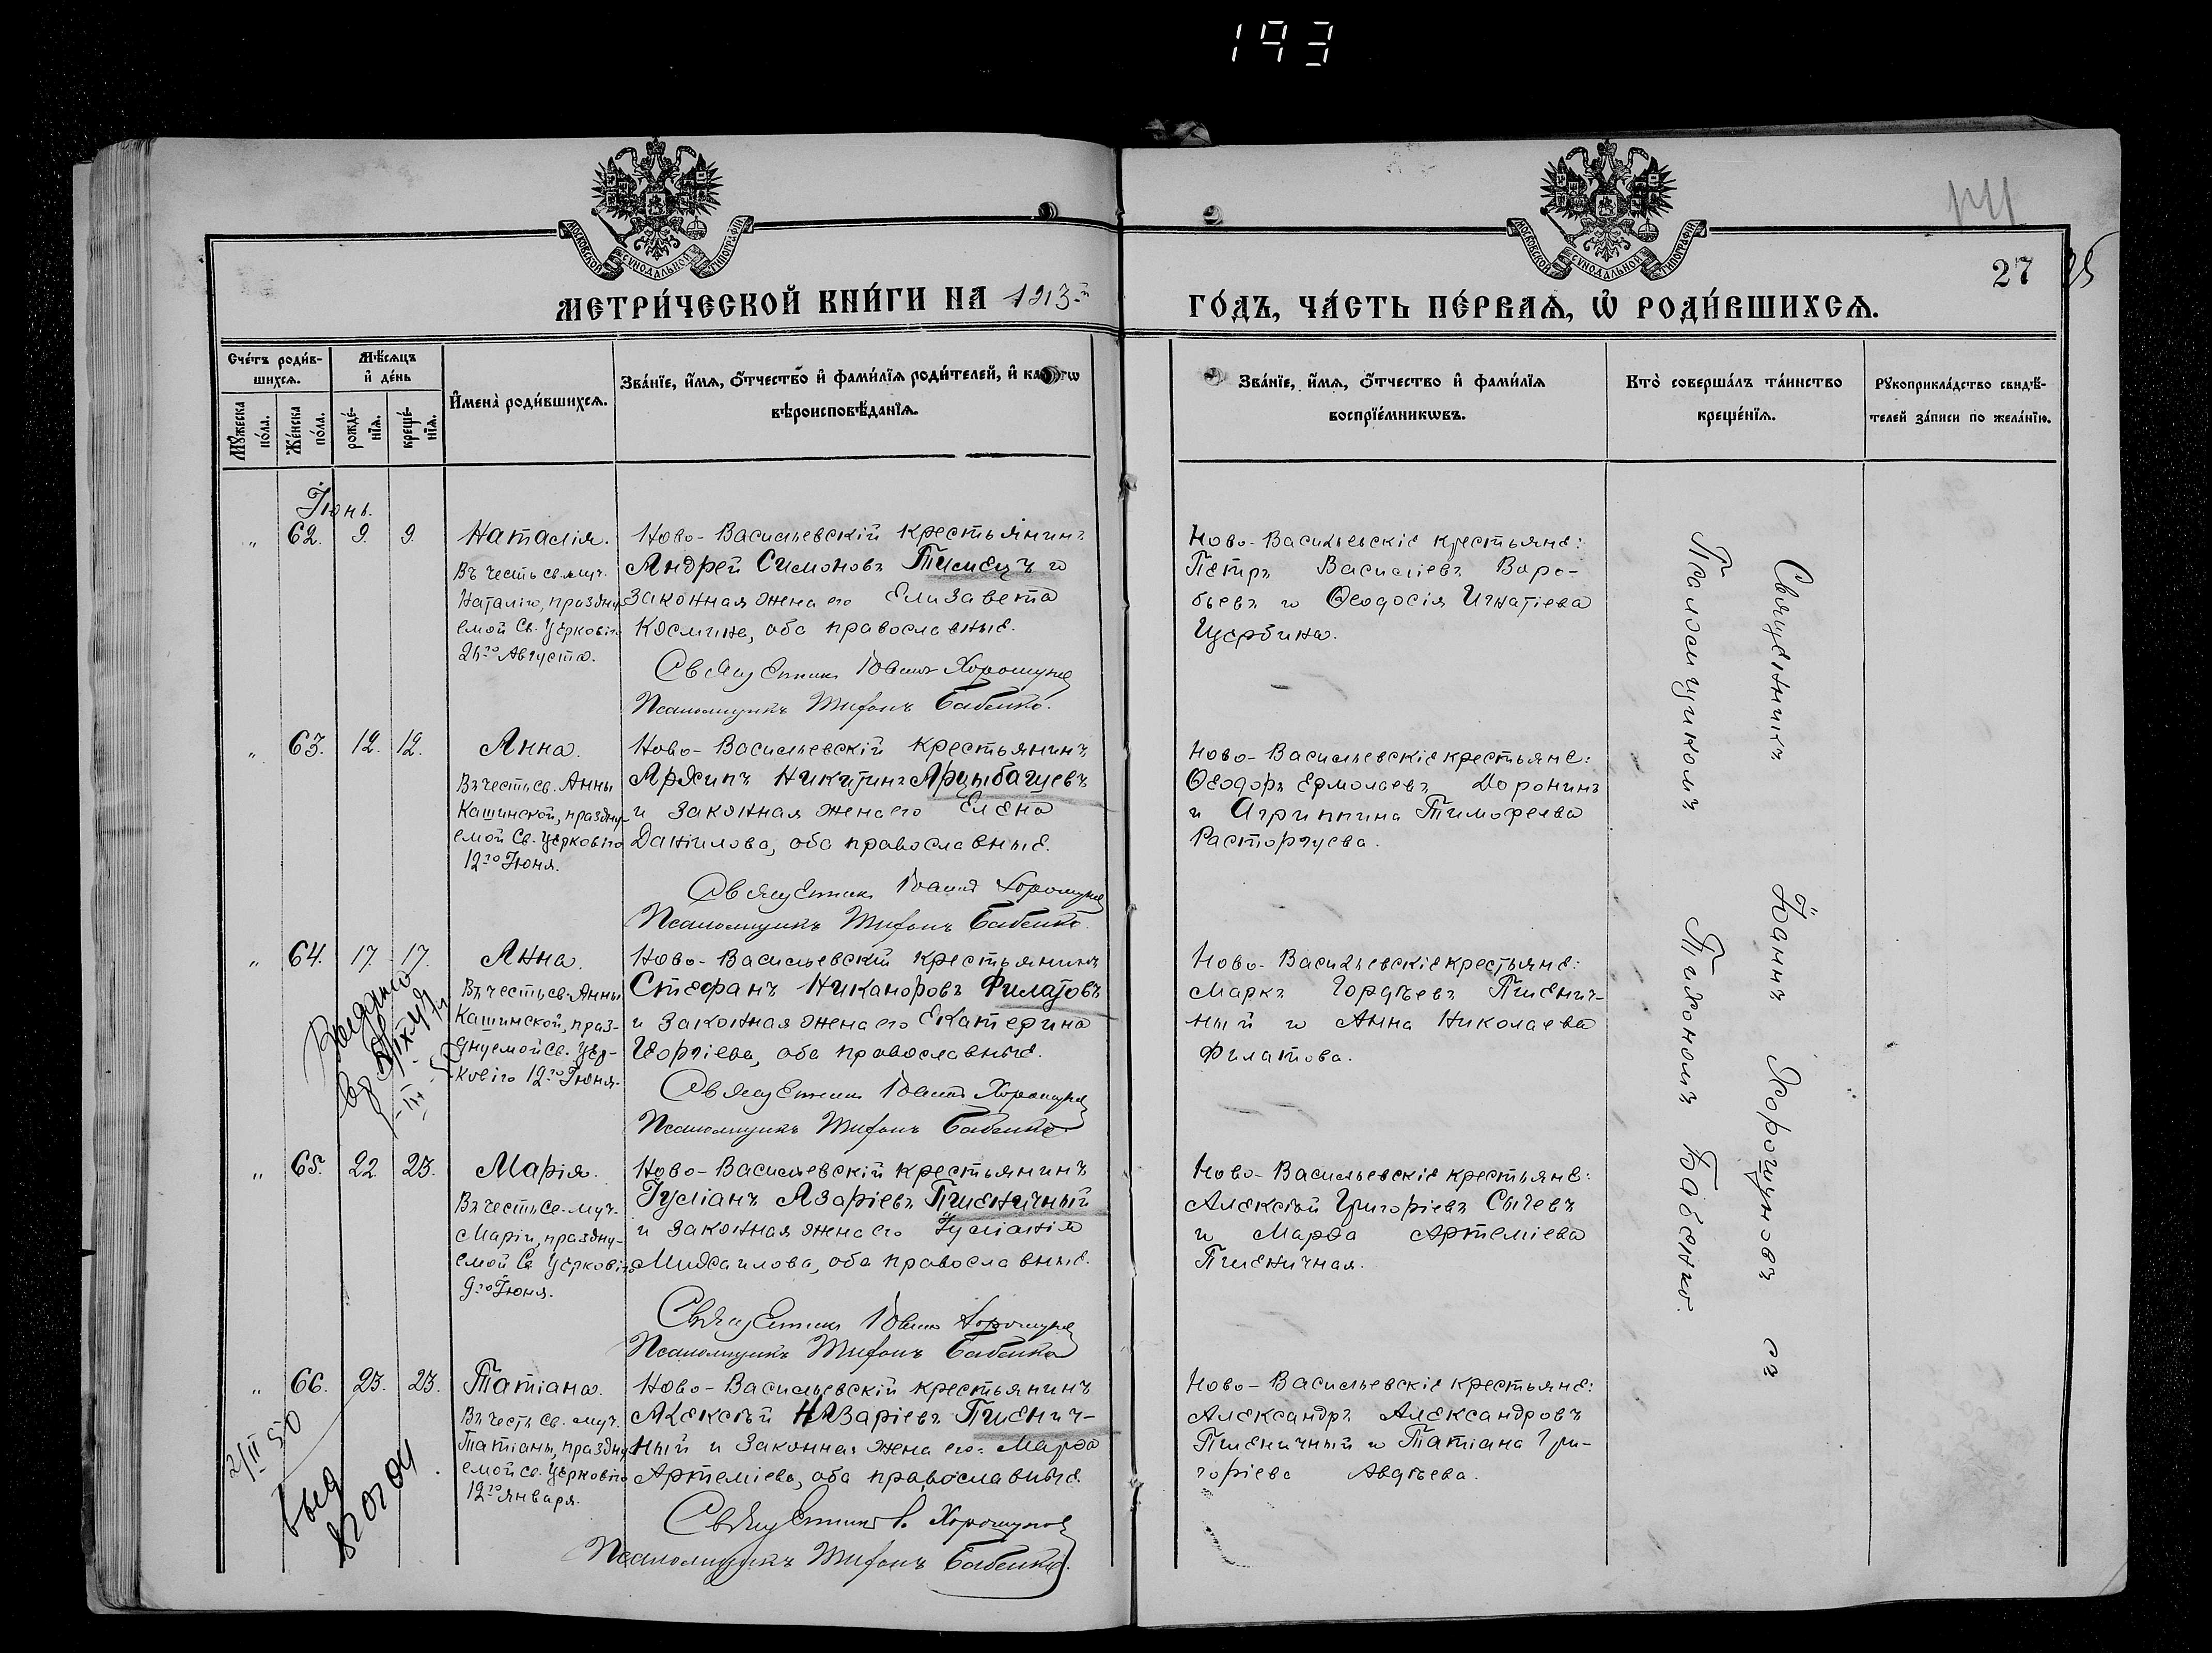 193
МОСКОВСКОЙ СѴНОДАЛЬНОЙ ТИПОГРАФІИ
МОСКОВСКОЙ СѴНОДАЛЬНОЙ ТИПОГРАФІИ
27
МЕТРИ́ЧЕСКОЙ КНИ́ГИ НА 1913-й
ГО́ДЪ, ЧА́СТЬ ПЕ́РВАѦ, Ѡ҆ РОДИ́ВШИХСѦ.
Сче́тъ роди́в-
шихсѧ.
Мѣ́сѧцъ
и҆ де́нь
Мꙋ́жеска
по́ла.
Же́нска
по́ла.
рожде́-
нїѧ.
креще́-
нїѧ.
И҆мена̀ роди́вшихсѧ.
Зва́нїе, и҆́мѧ, ѻ҆́тчество и҆ фами́лїѧ роди́телей, и҆
вѣроисповѣ́данїѧ.
Зва́нїе, и҆́мѧ, ѻ҆́тчество и҆ фами́лїѧ
воспрїе́мникѡвъ.
Кто̀ соверша́лъ та́инство
креще́нїѧ.
Рꙋкоприкла́дство свидѣ́-
телей за́писи по жела́нїю.
Іюнь.
„ 62. 9. 9. Наталія.
Въ честь св. муч.
Наталіи, праздну-
емой Св. Церковію
26го Августа.
Ново-Васильевскій крестьянинъ
Андрей Симоновъ и
законная жена его Елизавета
Космина, оба православные.
Священникъ Іоаннъ Хорошунов
Псаломщикъ Тихонъ Бабенко.
Ново-Васильевскіе крестьяне:
Петръ Василіевъ Воро-
бьевъ и Ѳеодосія Игнатіева
Щербина.
„ 63. 12. 12. Анна.
Въ честь св. Анны
Кашинской, праздну-
емой Св. Церковію
12го Іюня.
Ново-Васильевскій крестьянинъ
Архипъ Никитинъ Арцыбашевъ
и законная жена его Елена
Даніилова, оба православные.
Священникъ Іоаннъ Хорошунов
Псаломщикъ Тихонъ Бабенко.
Ново-Васильевскіе крестьяне:
Ѳеодоръ Ермолаевъ Доронинъ
и Агриппина Тимофеева
Расторгуева.
„ 64. 17. 17. Анна.
Въ честь св. Анны
Кашинской, праз-
днуемой Св. Цер-
ковію 12го Іюня.
Ново-Васильевскій крестьянинъ
Стефанъ Никаноровъ Филатовъ
и законная жена его Екатерина
Георгіева, оба православные.
Священникъ Іоаннъ Хорошунов
Псаломщикъ Тихонъ Бабенко
Ново-Васильевскіе крестьяне:
Маркъ Гордѣевъ Пшенич-
ный и Анна Николаева
Филатова.
„ 65. 22 23. Марія.
Въ честь св. муч.
Маріи, праздну-
емой Св. Церковію
9го Іюня.
Ново-Васильевскій крестьянинъ
Іуліанъ Азаріевъ Пшеничный
и законная жена его Іуліанія
Михаилова, оба православные.
Священникъ Іоаннъ Хорошунов
Псаломщикъ Тихонъ Бабенко
Ново-Васильевскіе крестьяне:
Алексѣй Григоріевъ Сычевъ
и Марѳа Артеміева
Пшеничная.
„ 66. 23. 23. Татіана.
Въ честь св. муч.
Татіаны, праздну-
емой св. Церковію
12го Января.
Ново-Васильевскій крестьянинъ
Алексѣй Назаріевъ Пшенич-
ный и законная жена его: Марѳа
Артеміева, оба православные.
Священникъ І. Хорошуновъ
Псаломщикъ Тихонъ Бабенко.
Ново-Васильевскіе крестьяне:
Александръ Александровъ
Пшеничный и Татіана Гри-
горіева Авдѣева.
Священникъ Іоаннъ Хорошуновъ съ
Псаломщикомъ Тихономъ Бабенко.
2/II 50